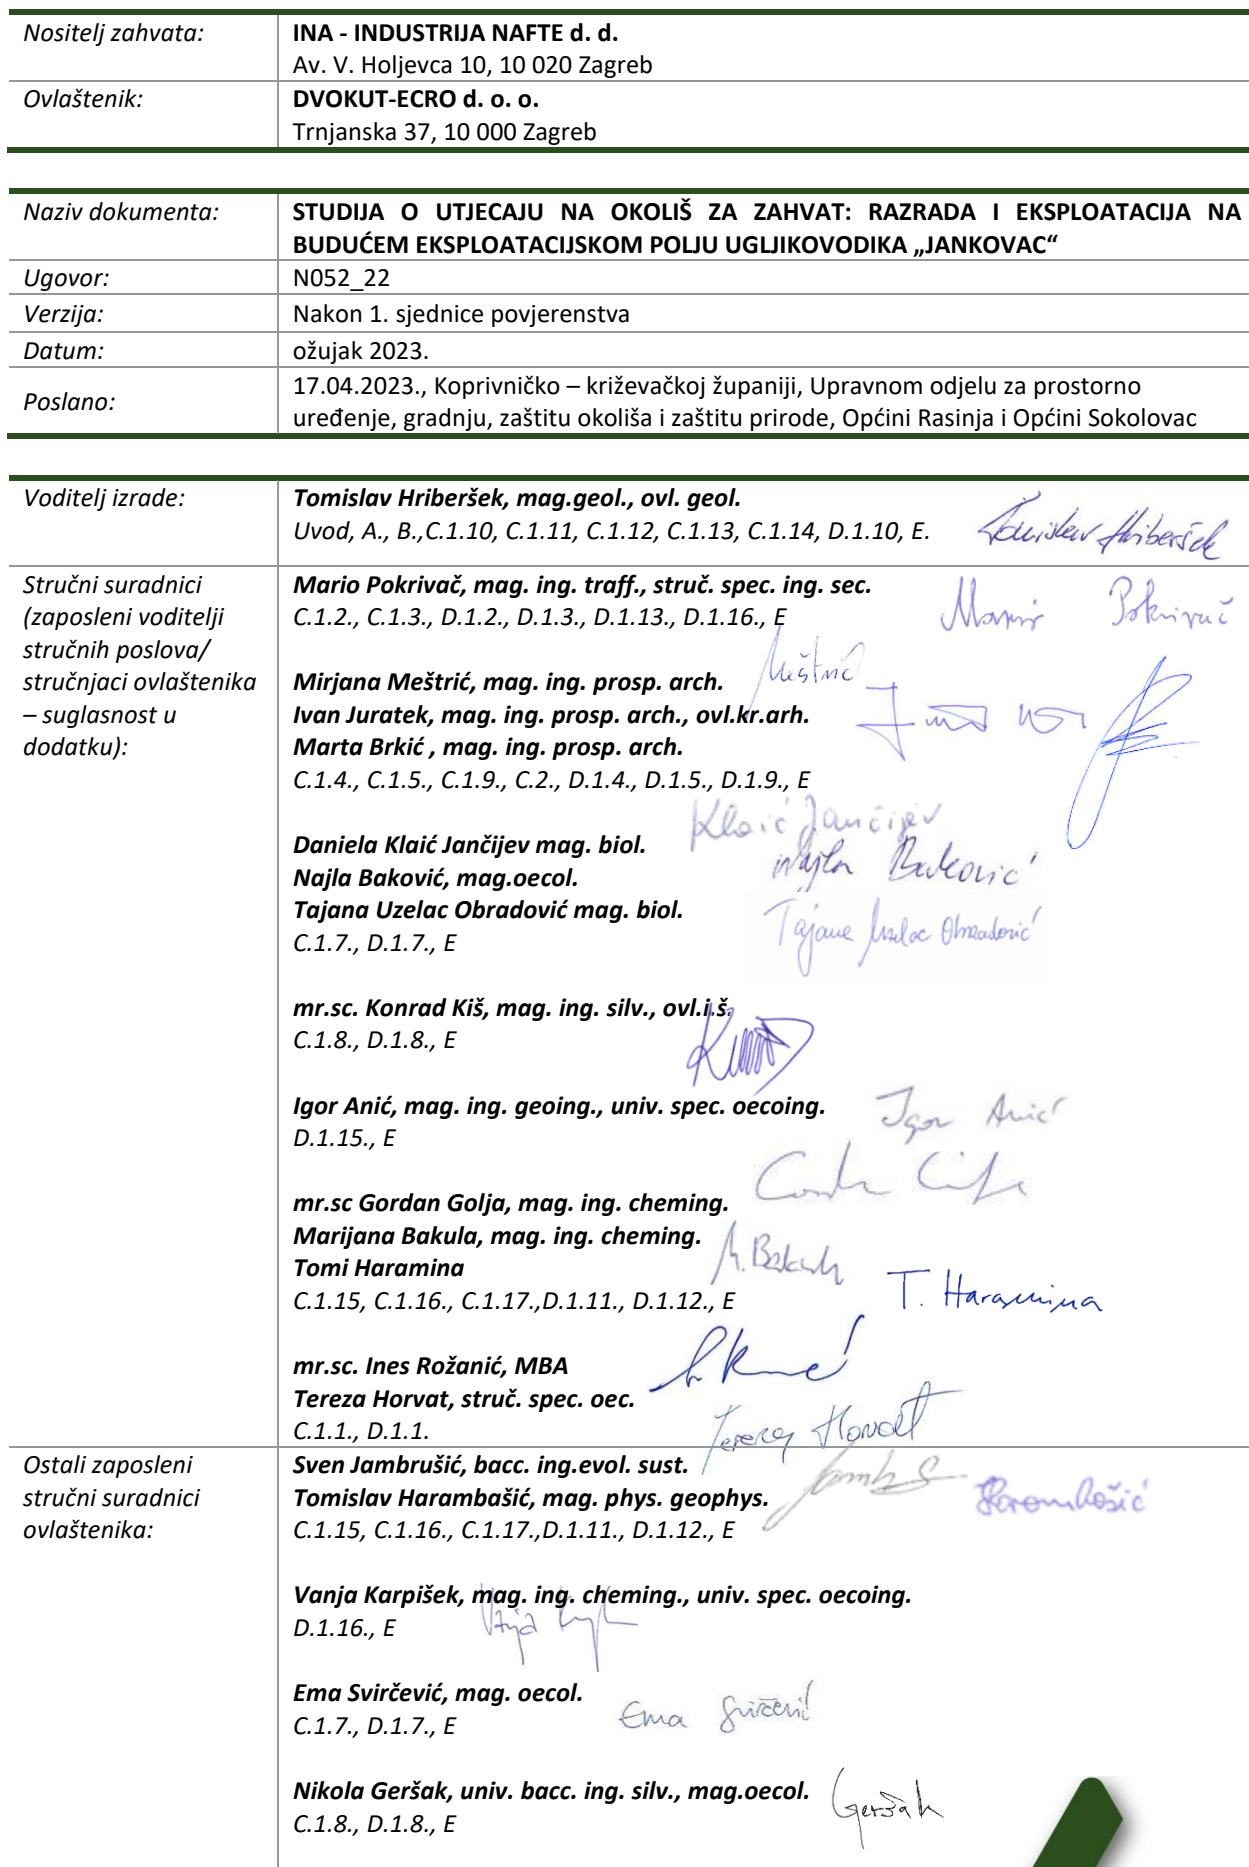 Nositelj zahvata:
INA - INDUSTRIJA NAFTE d. d.
Av. V. Holjevca 10, 10 020 Zagreb
Ovlaštenik:
DVOKUT-ECRO d. o. o.
Trnjanska 37, 10 000 Zagreb
Naziv dokumenta:
STUDIJA O UTJECAJU NA OKOLIŠ ZA ZAHVAT: RAZRADA I EKSPLOATACIJA NA
BUDUĆEM EKSPLOATACIJSKOM POLJU UGLJIKOVODIKA „JANKOVAC“
Ugovor:
N052_22
Verzija:
Nakon 1. sjednice povjerenstva
Datum:
ožujak 2023.
Poslano:
17.04.2023., Koprivničko – križevačkoj županiji, Upravnom odjelu za prostorno
uređenje, gradnju, zaštitu okoliša i zaštitu prirode, Općini Rasinja i Općini Sokolovac
Voditelj izrade:
Tomislav Hriberšek, mag.geol., ovl. geol.
Uvod, A., B.,C.1.10, C.1.11, C.1.12, C.1.13, C.1.14, D.1.10, E.
Tomislav Hriberšek
Stručni suradnici
(zaposleni voditelji
stručnih poslova/
stručnjaci ovlaštenika
– suglasnost u
dodatku):
Mario Pokrivač, mag. ing. traff., struč. spec. ing. sec.
C.1.2., C.1.3., D.1.2., D.1.3., D.1.13., D.1.16., E
Mario Pokrivač
Meštrić
Mirjana Meštrić, mag. ing. prosp. arch.
Ivan Juratek, mag. ing. prosp. arch., ovl.kr.arh.
Marta Brkić , mag. ing. prosp. arch.
C.1.4., C.1.5., C.1.9., C.2., D.1.4., D.1.5., D.1.9., E
Klaić Jančijev
Daniela Klaić Jančijev mag. biol.
Najla Baković, mag.oecol.
Najla Baković
Tajana Uzelac Obradović mag. biol.
Tajana Uzelac Obradović
C.1.7., D.1.7., E
mr.sc. Konrad Kiš, mag. ing. silv., ovl.i.š.
C.1.8., D.1.8., E
Igor Anić, mag. ing. geoing., univ. spec. oecoing.
Igor Anić
D.1.15., E
mr.sc Gordan Golja, mag. ing. cheming.
Marijana Bakula, mag. ing. cheming.
M. Bakula
Tomi Haramina
T. Haramina
C.1.15, C.1.16., C.1.17.,D.1.11., D.1.12., E
mr.sc. Ines Rožanić, MBA
Tereza Horvat, struč. spec. oec.
C.1.1., D.1.1.
Tereza Horvat
Ostali zaposleni
stručni suradnici
ovlaštenika:
Sven Jambrušić, bacc. ing.evol. sust.
Tomislav Harambašić, mag. phys. geophys.
Harambašić
C.1.15, C.1.16., C.1.17.,D.1.11., D.1.12., E
Vanja Karpišek, mag. ing. cheming., univ. spec. oecoing.
D.1.16., E
Ema Svirčević, mag. oecol.
Ema Svirčević
C.1.7., D.1.7., E
Nikola Geršak, univ. bacc. ing. silv., mag.oecol.
Geršak
C.1.8., D.1.8., E